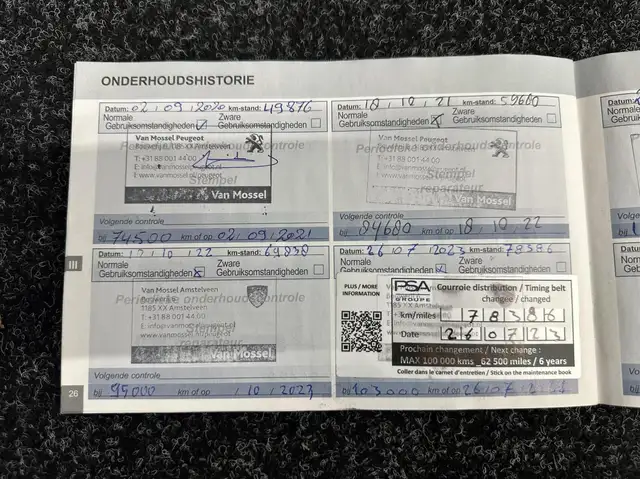 ONDERHOUDSHISTORIE
Datum: 02 09 2020 km-stand: 49876
Normale Zware
Gebruiksomstandigheden Gebruiksomstandigheden
Van Mossel Peugeot
1185 XX Amstelveen
T: +31 88 001 44 00
E: info@vanmossel.nl
I: www.vanmossel.nl/peugeot
Stempel
Van Mossel
Volgende controle
bij 74500 km of op 02/09/2021
Datum: 18 10 21 km-stand: 59680
Normale Zware
Gebruiksomstandigheden Gebruiksomstandigheden
Van Mossel Peugeot
Periodieke onderhoudscontrole
T: +31 88 001 44 00
Stempel
reparateur
Van Mossel
Volgende controle
bij 84680 km of op 18 10 22
III
Datum: 10 22 km-stand:
Normale Zware
Gebruiksomstandigheden Gebruiksomstandigheden
Van Mossel Amstelveen
Periodieke onderhoudscontrole
1185 XX Amstelveen
T: +31 88 001 44 00
E: info@vanmossel.nl
I: www.vanmossel.nl/peugeot
reparateur
Van Mossel
Volgende controle
bij 95000 km of op 10 2023
Datum: 26 07 2023 km-stand: 78386
Normale Zware
Gebruiksomstandigheden Gebruiksomstandigheden
PLUS / MORE
INFORMATION
PSA
GROUPE
Courroie distribution / Timing belt
changée / changed
km/miles 78386
Date 260723
Prochain changement / Next change :
MAX 100 000 kms _62 500 miles / 6 years
Coller dans le carnet d'entretien / Stick on the maintenance book
bij 103000 km of op 26 07
26